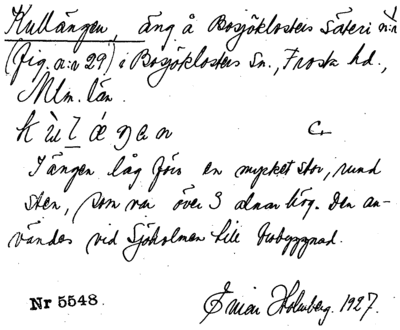 Kullängen, äng å Bosjöklosters Säteri n:r
(fig. a:r 29) i Bosjöklosters Sn., Frosta hd.,
Mlm. län.
I ängen låg förr en mycket stor, rund
sten, som var över 3 alnar hög. Den an-
vändes vid Sjöholmen till brobyggnad.
Nr 5548. Einar Holmberg. 1927.